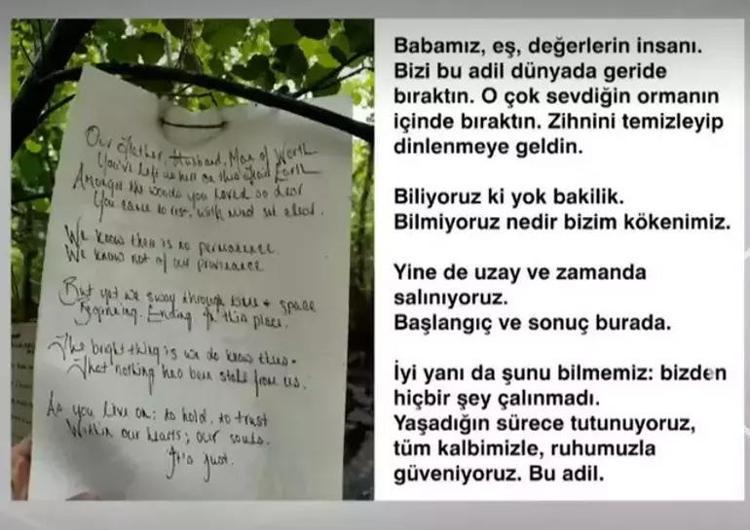 Our Father, Husband, Man of Worth
You've left us here on this Earth
Amongst the woods you loved so dear
You came to rest, with mind set clear.
We know there is no permanence.
We know not of our provenance
But yet we sway through time + space
Beginning. Ending in this place.
The bright thing is we do know thus-
That nothing has been stole from us.
As you live on: to hold, to trust
Within our hearts; our souls.
It's just.
Babamız, eş, değerlerin insanı.
Bizi bu adil dünyada geride
bıraktın. O çok sevdiğin ormanın
içinde bıraktın. Zihnini temizleyip
dinlenmeye geldin.
Biliyoruz ki yok bakilik.
Bilmiyoruz nedir bizim kökenimiz.
Yine de uzay ve zamanda
salınıyoruz.
Başlangıç ve sonuç burada.
İyi yanı da şunu bilmemiz: bizden
hiçbir şey çalınmadı.
Yaşadığın sürece tutunuyoruz,
tüm kalbimizle, ruhumuzla
güveniyoruz. Bu adil.